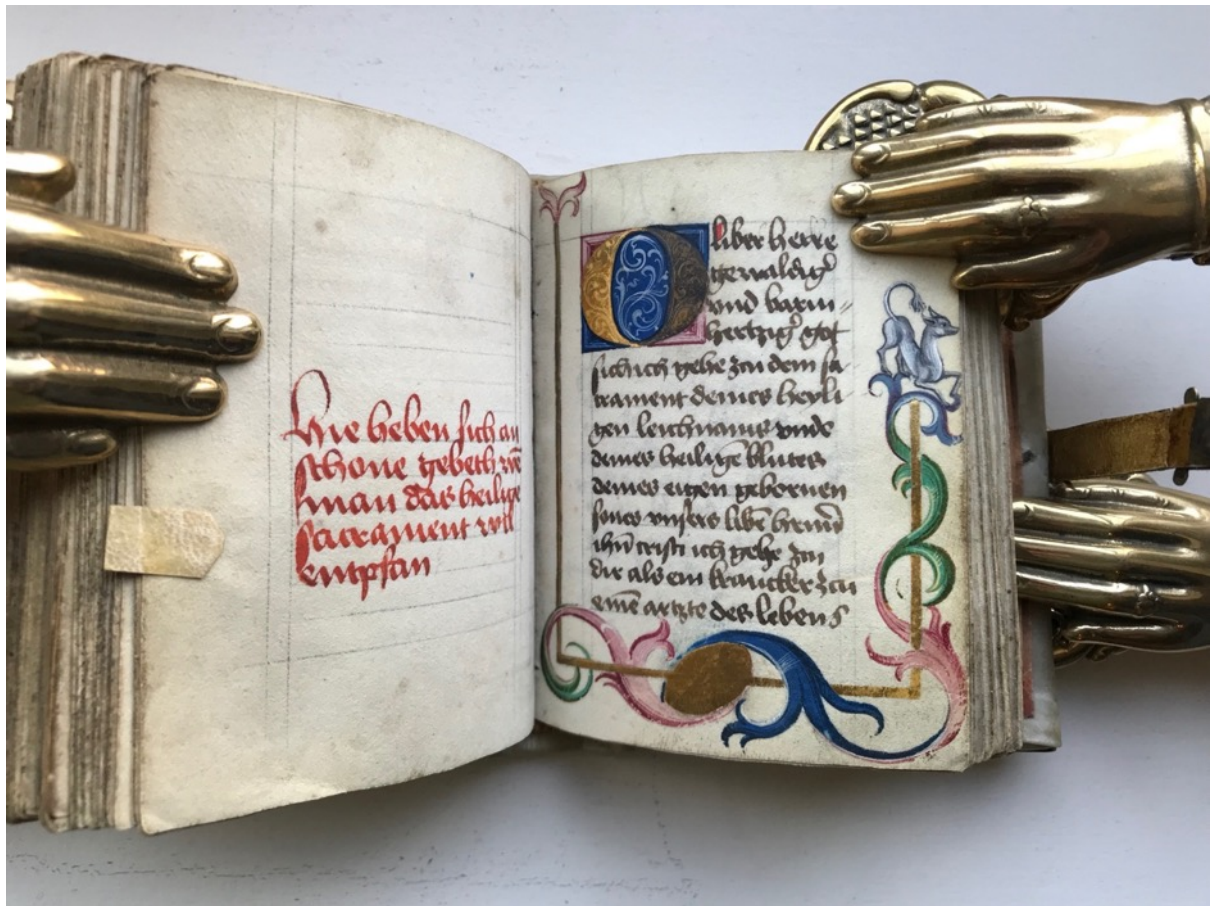 Hie heben sich an
schone gebeth wē
man das heilige
sacrament wil
entpfan
O liber herre
gewaldig᷑
vnd barm⸗
hertzig᷑ got
sich ich gehe zcu dem sa
crament deines heyli
gen leichnams vnde
deines heiligē blutes
deines eigen gebornen
sones vnsers libē hern
ihū cristi ich gehe zcu
dir als ein krancker zcu
einē artzte des lebens